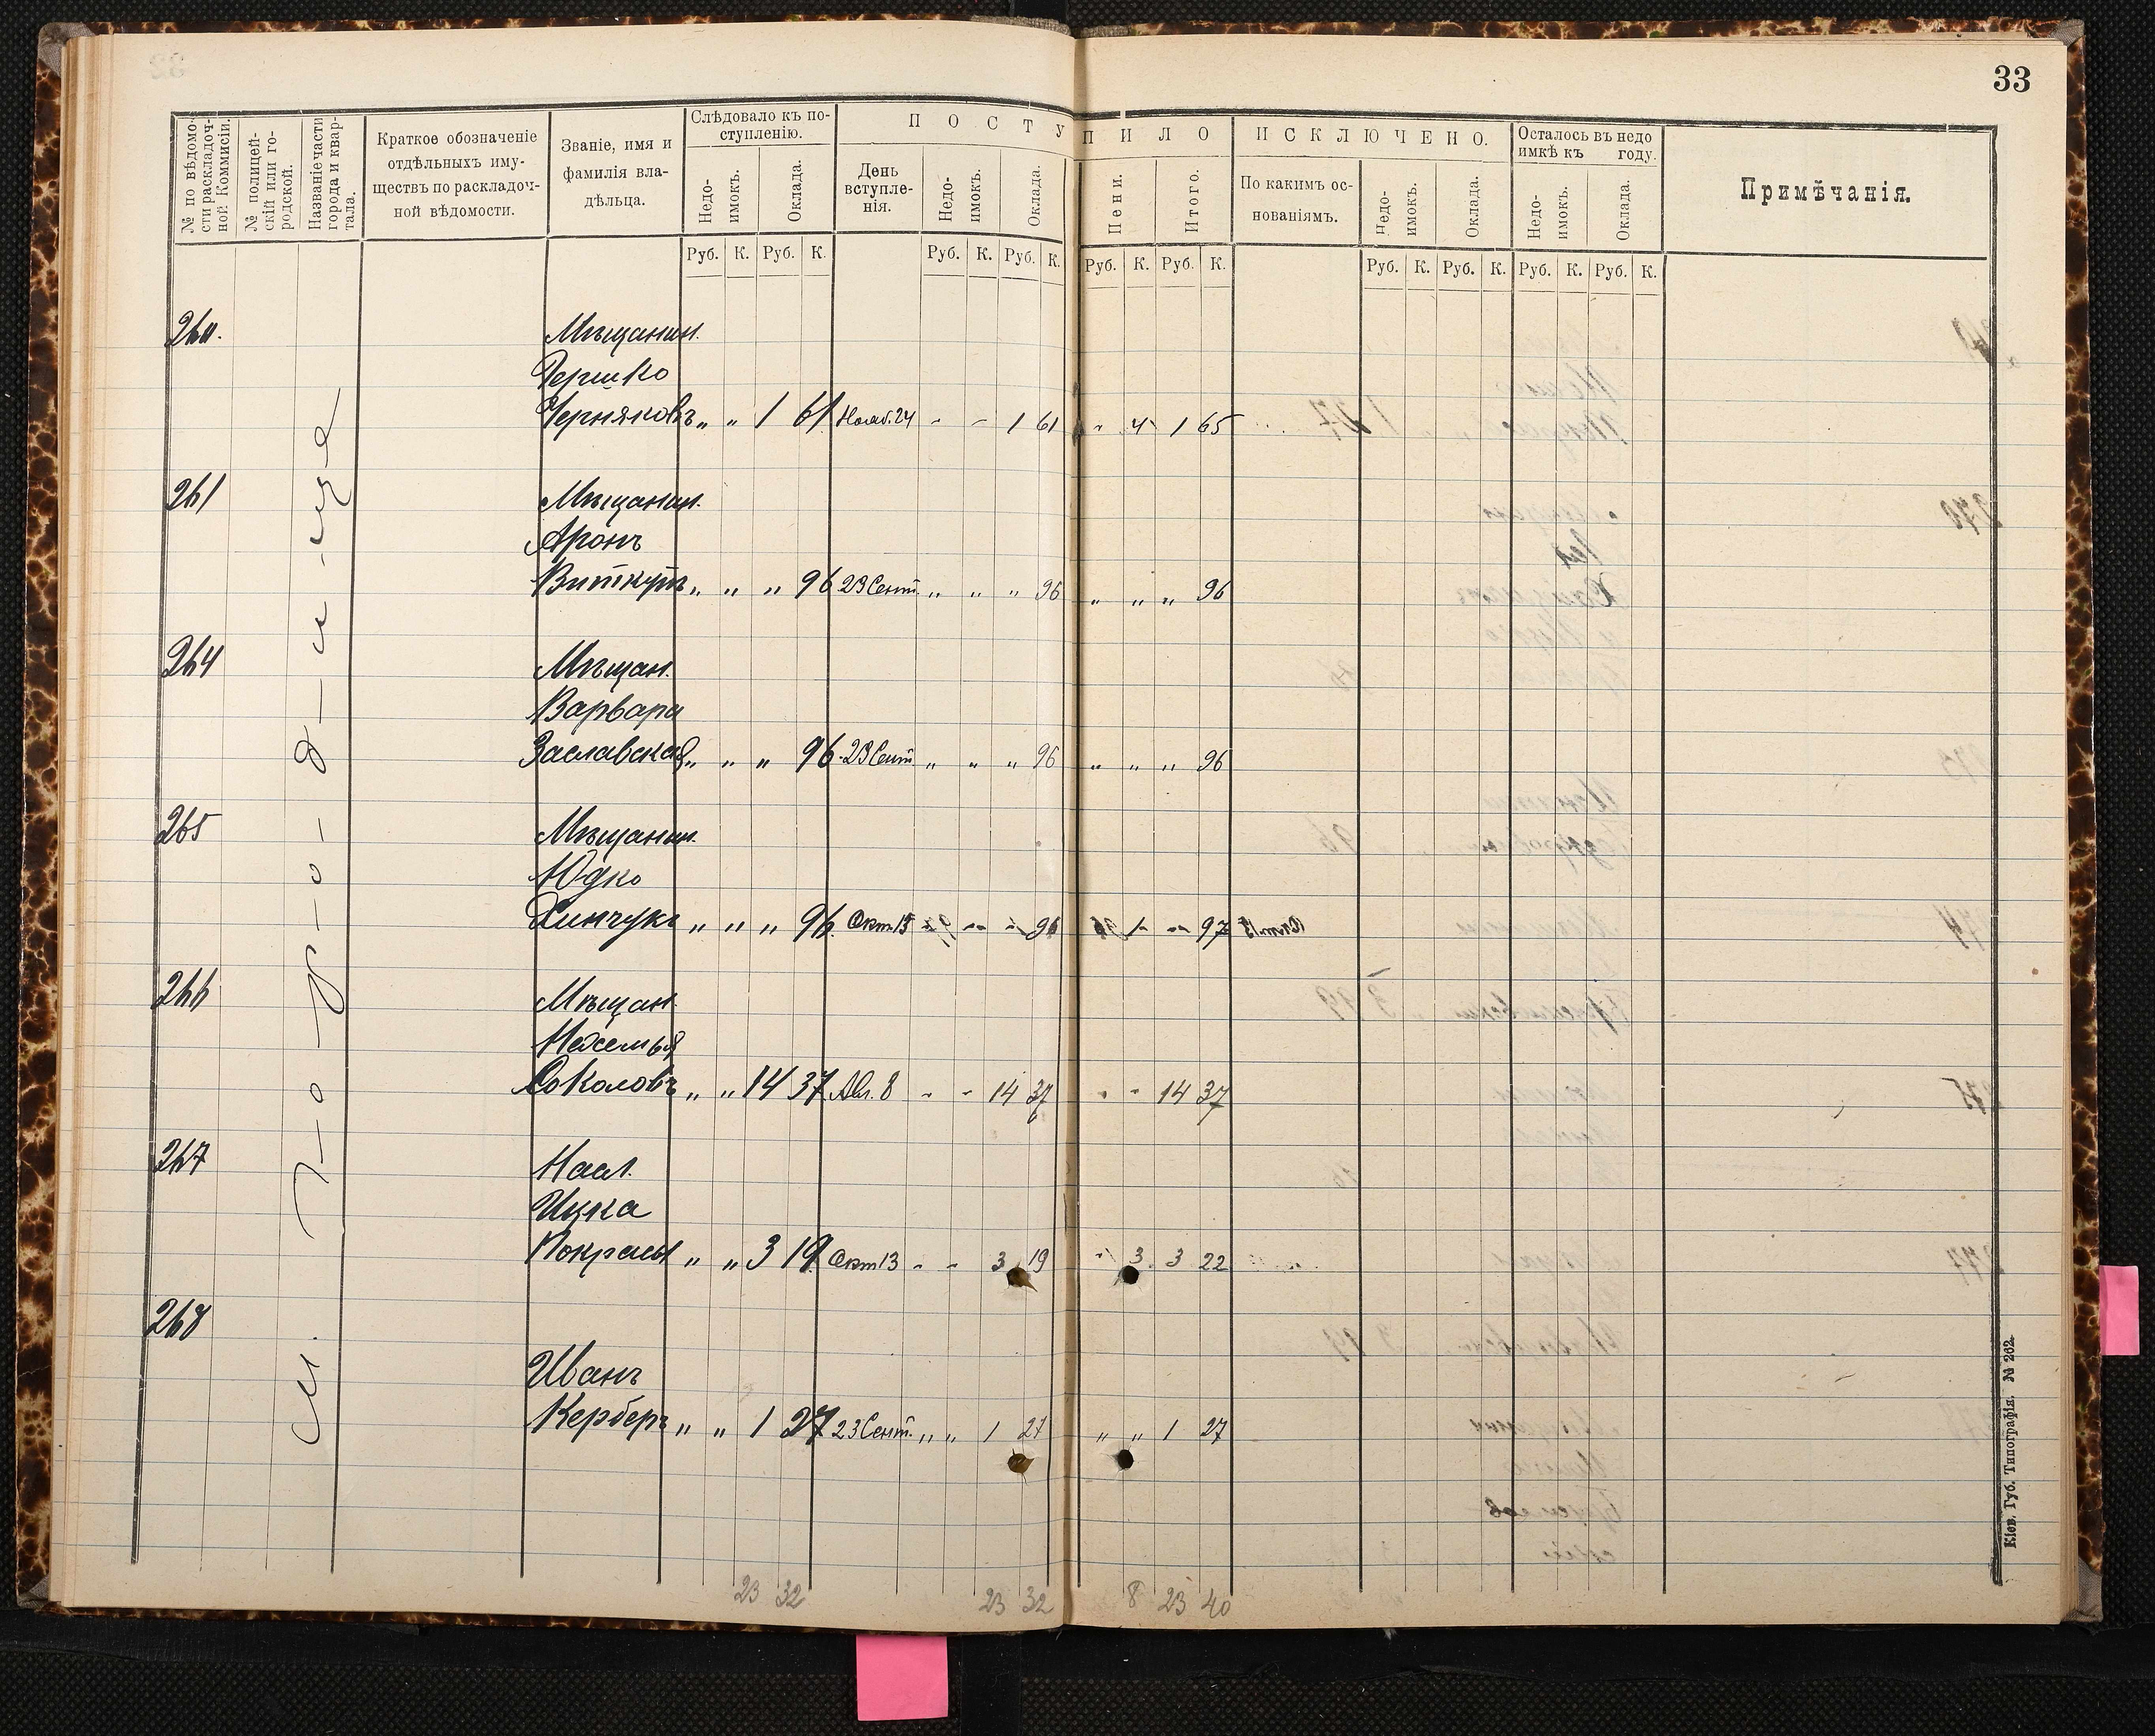 33
№ по вѣдомо-
сти раскладоч-
ной Коммисіи.
№ полицей-
скій или го-
родской.
Названіе части
города и квар-
тала.
Краткое обозначеніе
отдѣльныхъ иму-
ществъ по раскладоч-
ной вѣдомости.
Званіе, имя и
фамилія вла-
дѣльца.
Слѣдовало къ по-
ступленію.
Недо-
имокъ.
Оклада.
ПОСТУПИЛО
День
вступле-
нія.
Недо-
имокъ.
Оклада.
Пени.
Итого.
ИСКЛЮЧЕНО.
По какимъ ос-
нованіямъ.
Недо-
имокъ.
Оклада.
Осталось въ недо
имкѣ къ году.
Недо-
имокъ.
Оклада.
Примѣчанія.
Руб. К. Руб. К. Руб. К. Руб. К. Руб. К. Руб. К. Руб. К. Руб. К. Руб. К. Руб. К.
260. Мѣщанин.
Гершко
Черняковъ „ „ 1 61 Нояб. 24 - - 1 61 „ 4 1 65
261 Мѣщанин.
Аронъ
Виткупъ „ „ „ 96 23 Сент. „ „ „ 96 „ „ „ 96
264 Мѣщан.
Варвара
Заславская „ „ „ 96 23 Сент. „ „ „ 96 „ „ „ 96
265 Мѣщанин.
Юдко
Хинчукъ „ „ „ 96 Окт. 13 - - - 96 1 - 97
266 Мѣщан.
Соколовъ „ „ 14 37 Авг. 8 - - 14 37 - - 14 37
267 Насл.
Ицка
Покрасы „ „ 3 19 Окт 13 - - 3 19 - 3 3 22
268
Иванъ
Керберъ „ „ 1 27 23 Сент. „ „ 1 27 „ „ 1 27
м. Городище
23 32 23 32 8 23 40
Кіев. Губ. Типографія. № 262.